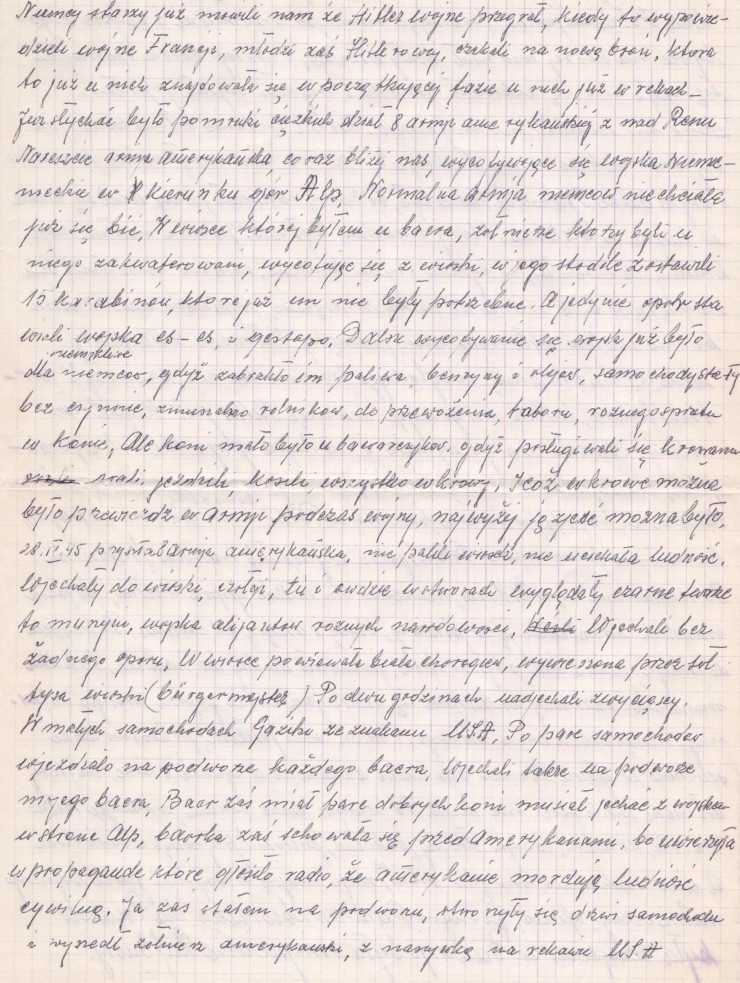 Niemcy starzy już mówili nam że Hitler wojnę przegrał, kiedy to wypowie-
dzieli wojnę Francji, młodzi zaś Hitlerowcy, czekali na nową broń, która
to już u nich znajdowała się w początkującej fazie u nich już w rękach_
Już słychać było pomruki ciężkich dział 8 armji amerykańskiej z nad Renu
Nareszcie armia amerykańska coraz bliżej nas, wycofywujące się wojska Nieme-
mieckie w kierunku gór Alp, Normalna armja niemców nie chciała
już się bić, W wiosce której byłem u baera, żołnierze którzy byli u
niego zakwaterowani, wycofując się z wioski, w jego stodole zostawili
15 karabinów, które już im nie były potrzebne. A jedynie opór sta
wiali wojska es-es, i gestapo, Dalsze wycofywanie się wojsk już było
niemożliwe
dla niemców, gdyż zabrakło im paliwa, benzyny i olejów, samochody stały
bez czynnie, zmuszono rolników, do przewożenia, taboru, różnego sprzętu
w konie, Ale koni mało było u bawarczyków, gdyż posługiwali się krowami
orali, jeździli, kosili, wszystko w krowy, I cóż w krowę można
było przewieźdź w armji podczas wojny, najwyżej ją zjeść można było,
28.IV.45 przyszła armja amerykańska, nie palili wiosek, nie uciekała ludność.
Wjechały do wioski, czołgi, tu i ówdzie w otworach wyglądały czarne twarze
to murzyni, wojska aliantów różnych narodowości, Wjechali bez
żadnego oporu, W wiosce powiewała biała chorągiew, wywieszona przez soł
tysa wioski (bürgermajster) Po dwu godzinach nadjechali zwycięscy.
W małych samochodach Gaziki ze znakami USA, Po parę samochodów
wjeżdżało na podwórze każdego baera, Wjechali także na podwórze
mojego baera, Baer zaś miał parę dobrych koni musiał jechać z wojskiem
w stronę Alp, baerka zaś schowała się przed Amerykanami, bo uwierzyła
w propagandę które głosiło radio, że amerykanie mordują ludność
cywilną. Ja zaś stałem na podwórzu, otworzyły się drzwi samochodu
i wyszedł żołnierz amerykański, z naszywką na rękawie USA